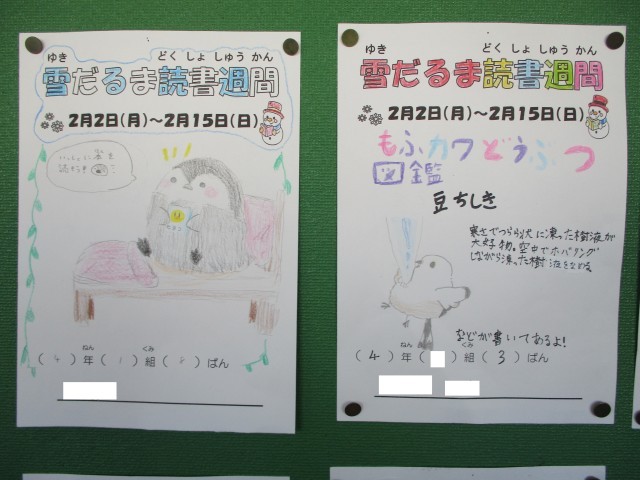 ゆき どく しょ しゅう かん
雪だるま読書週間
2月2日(月)~2月15日(日)
いっしょに本を
読もう
(4)年(1)組(8)ばん
ねん くみ
ゆき どく しょ しゅう かん
雪だるま読書週間
2月2日(月)~2月15日(日)
もふカワどうぶつ
図鑑
豆ちしき
寒さでつらら状に凍った樹液が
大好物。空中でホバリング
しながら凍った樹液をなめる。
などが書いてあるよ!
ねん くみ
(4)年( )組(3)ばん